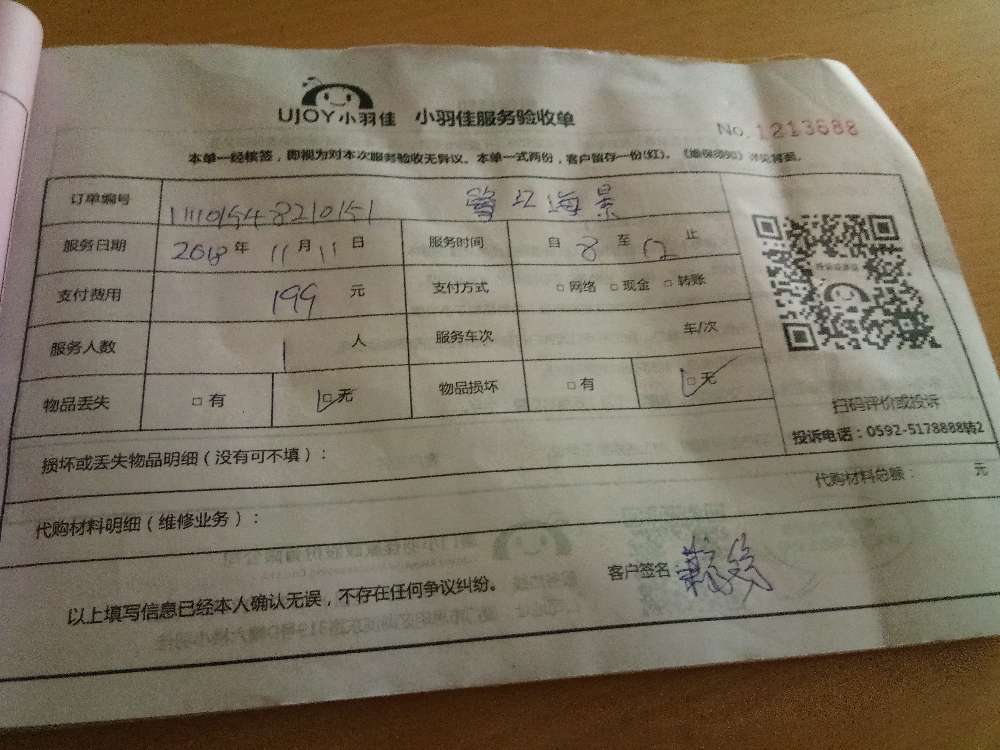 UJOY小羽佳 小羽佳服务验收单
No. 1213688
本单一经核签，即视为对本次服务验收无异议。本单一式两份，客户留存一份(红)。《维保须知》详见背面。
订单编号 海景
服务日期 2018 年 11 月 11 日 服务时间 自 8 至 12 止
支付费用 199 元 支付方式 □ 网络 □ 现金 □ 转账
服务人数 1 人 服务车次 车/次
物品丢失 □ 有 □ 无 物品损坏 □ 有 □ 无
扫码评价或投诉
投诉电话：0592-5178888转2
损坏或丢失物品明细（没有可不填）：
代购材料明细（维修业务）： 代购材料总额： 元
以上填写信息已经本人确认无误，不存在任何争议纠纷。 客户签名：